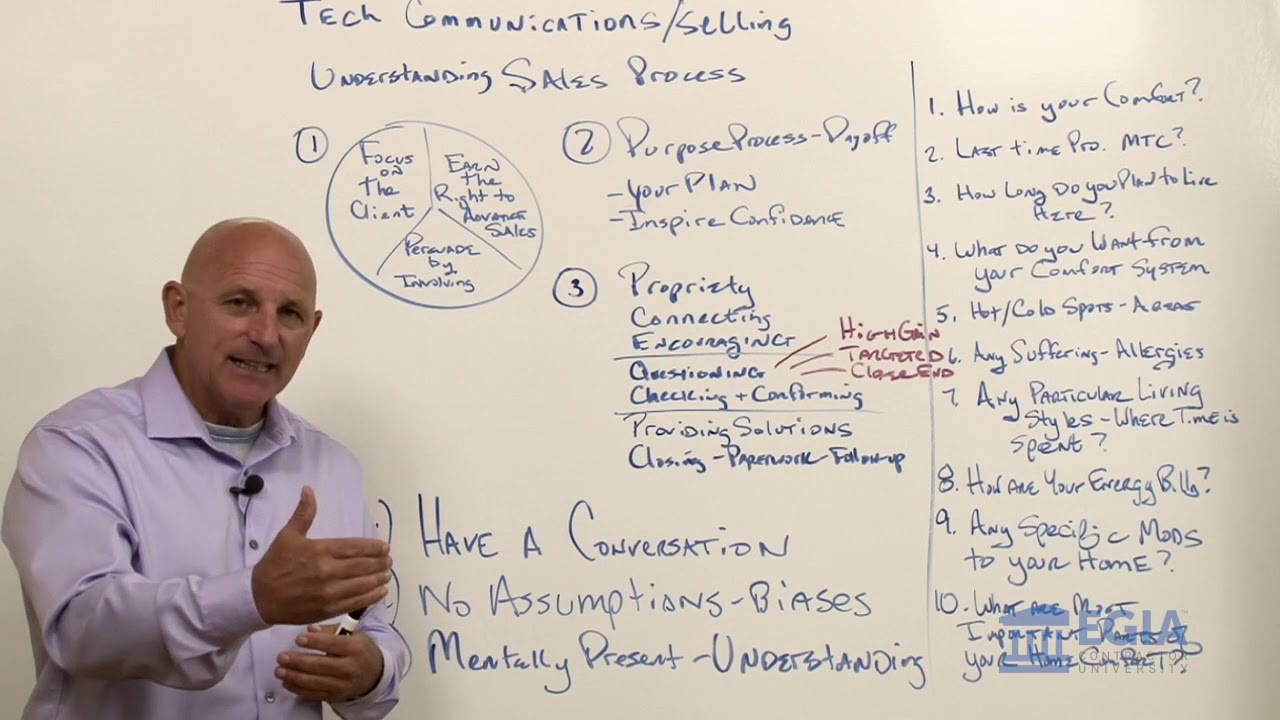 Tech Communications/Selling
Understanding Sales Process
1
Focus
on
The
Client
Earn
the
Right to
Advance
Sales
Persuade
by
Involving
2
Purpose Process-Payoff
-Your Plan
-Inspire Confidence
3
Propriety
Connecting
Encouraging
Questioning
Checking + Conforming
Providing Solutions
Closing-Paperwork-Follow-up
High Gain
Targeted
Close End
Have A Conversation
No Assumptions-Biases
Mentally Present-Understanding
1. How is your Comfort?
2. Last time Pro. MTC?
3. How Long Do you Plan to Live
Here?
4. What Do you Want from
your Comfort System
5. Hot/Cold Spots-Areas
6. Any Suffering-Allergies
7. Any Particular Living
Styles-Where Time is
Spent?
8. How are Your Energy Bills?
9. Any Specific Mods
to your Home?
10. What are Most
Important Parts of
your Home Comfort?
EGIA
CONTRACTOR
UNIVERSITY